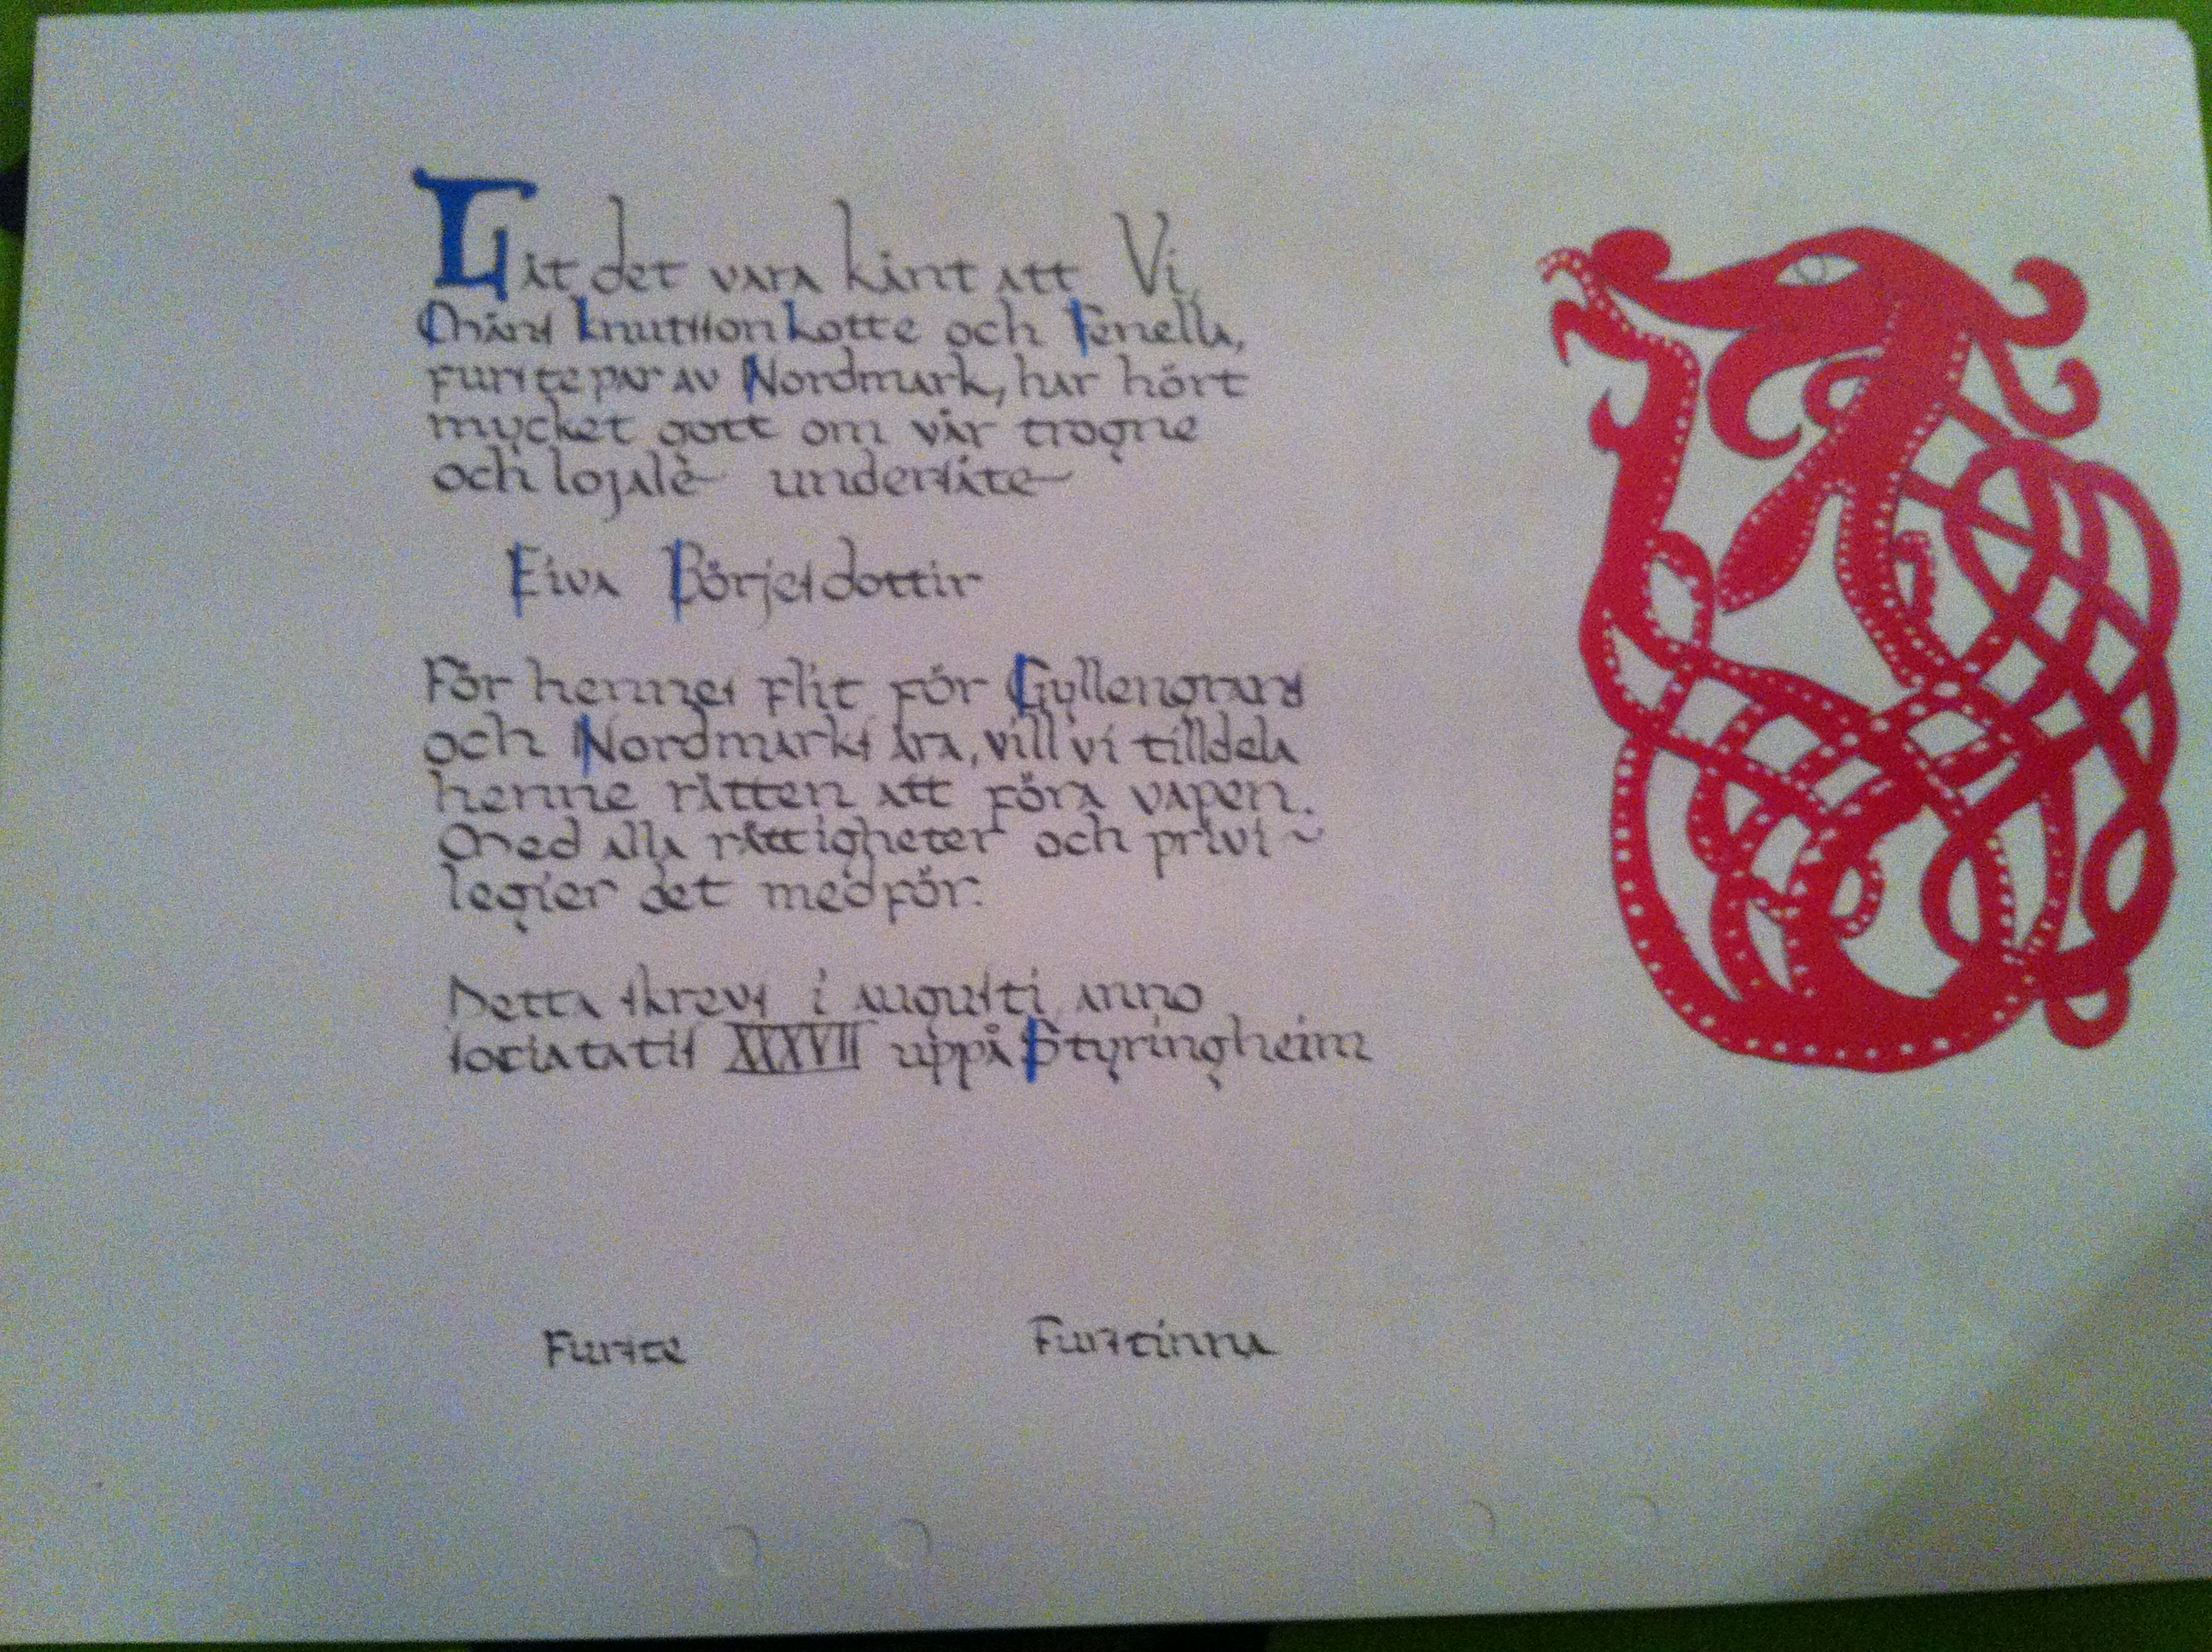 Låt det vara känt att Vi,
Måns knutsson kotte och Fenella,
furstepar av Nordmark, har hört
mycket gott om vår trogne
och lojale undersåte
Eiva Börjesdottir
För hennes flit för Gyllengran
och Nordmarks ära, vill vi tilldela
henne rätten att föra vapen.
Med alla rättigheter och privi~
legier det medför.
Detta skrevs i augusti, anno
sociatatis XXXVII uppå Styringheim
Furste Furstinna